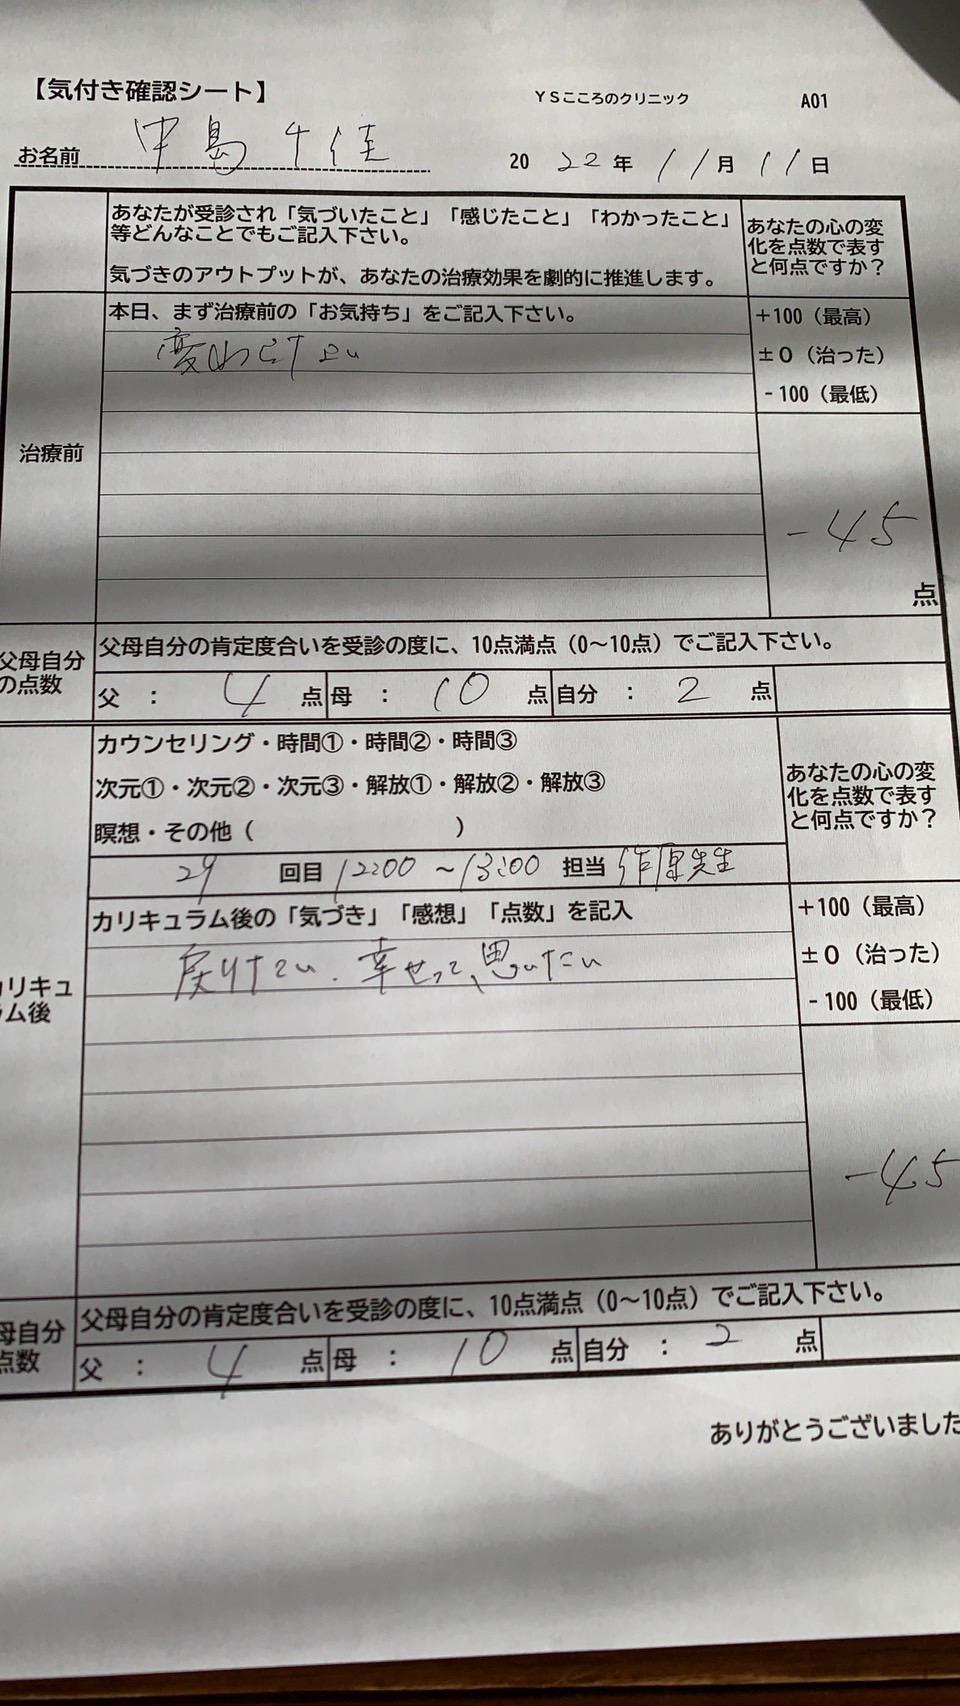 【気付き確認シート】
YSこころのクリニック
A01
お名前 中島千佳
2022年11月11日
あなたが受診され「気づいたこと」「感じたこと」「わかったこと」
等どんなことでもご記入下さい。
気づきのアウトプットが、あなたの治療効果を劇的に推進します。
あなたの心の変
化を点数で表す
と何点ですか?
治療前
本日、まず治療前の「お気持ち」をご記入下さい。
+100(最高)
±0(治った)
-100(最低)
-45
点
父母自分
の点数
父母自分の肯定度合いを受診の度に、10点満点(0~10点)でご記入下さい。
父 : 4 点 母 : 10 点 自分 : 2 点
カウンセリング・時間①・時間②・時間③
次元①・次元②・次元③・解放①・解放②・解放③
瞑想・その他( )
あなたの心の変
化を点数で表す
と何点ですか?
29 回目 12:00 ~13:00 担当 作原先生
カリキュラム後の「気づき」「感想」「点数」を記入
戻りたい、幸せって、思いたい
+100(最高)
±0(治った)
-100(最低)
リキュ
ム後
-45
母自分
点数
父母自分の肯定度合いを受診の度に、10点満点(0~10点)でご記入下さい。
父 : 4 点 母 : 10 点 自分 : 2 点
ありがとうございました